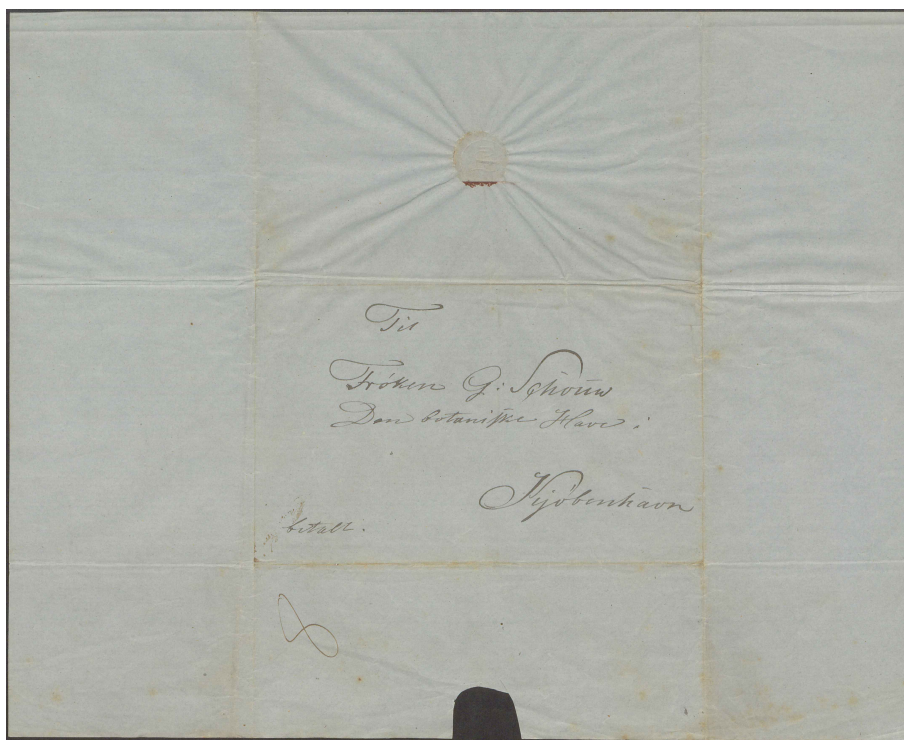 Til
Frøken G: Schouw
Den botaniske Have i
Kjøbenhavn
betalt.
8